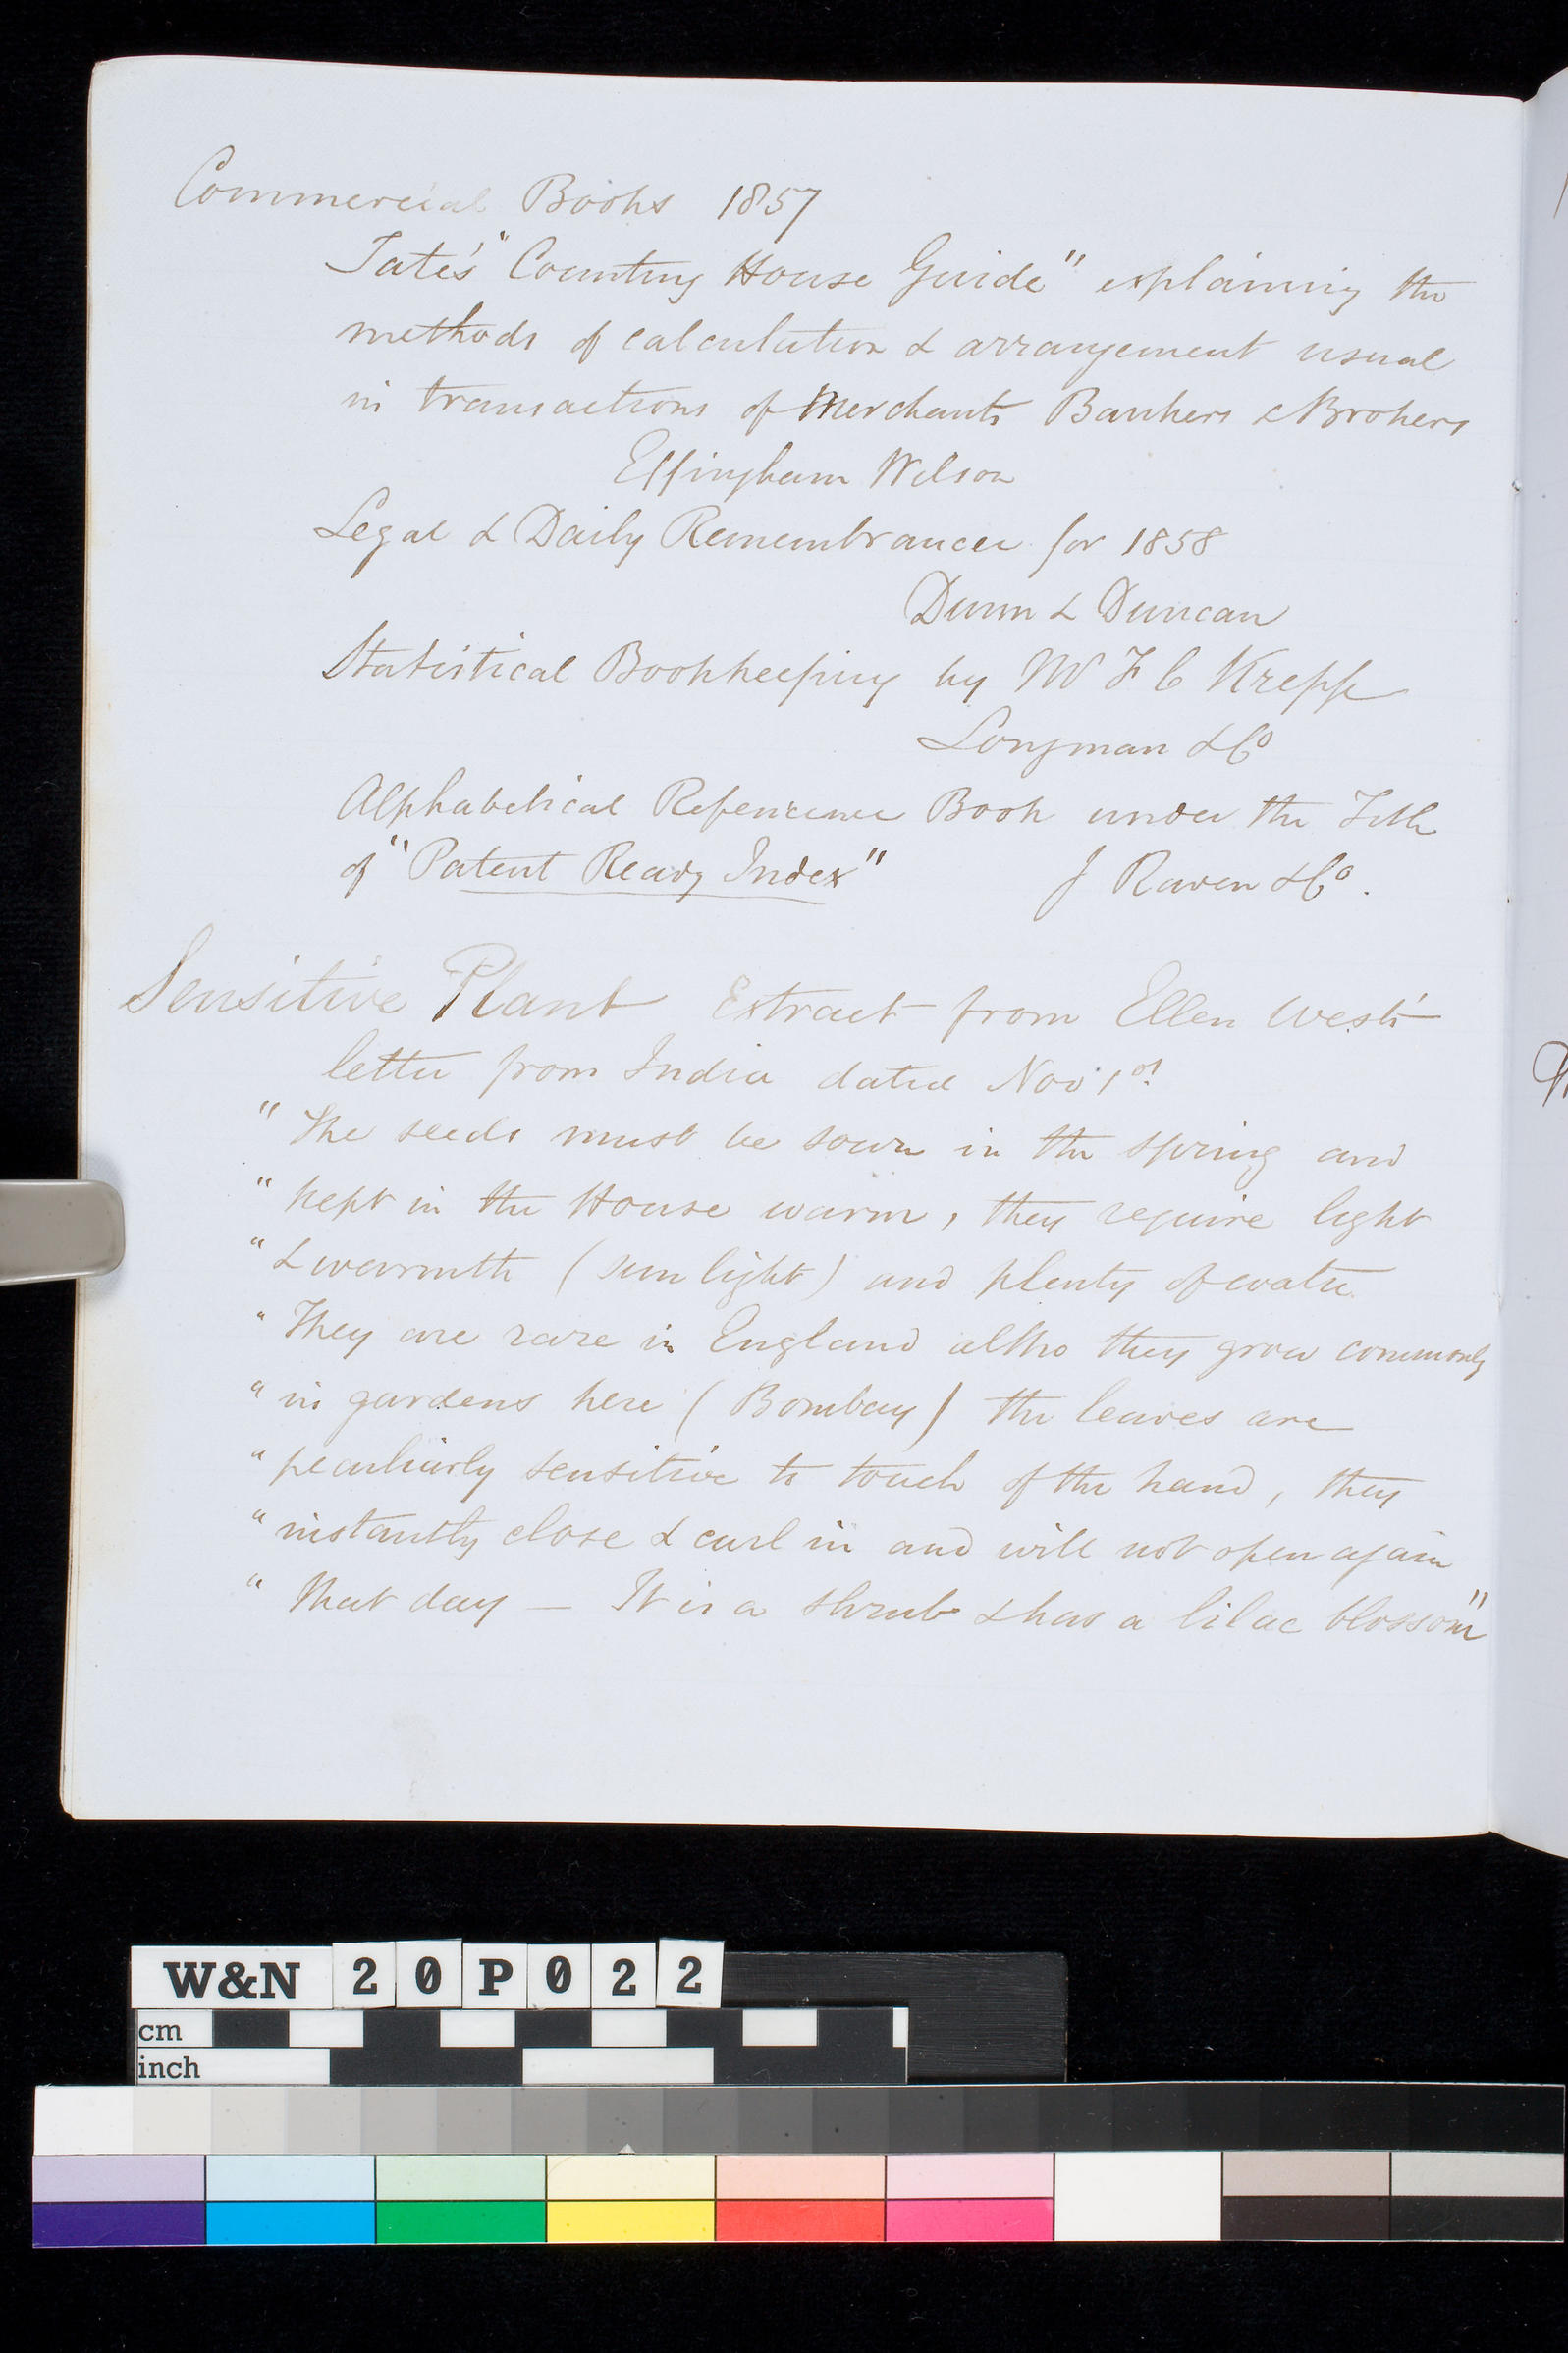 Commercial Books 1857
Tate's "Counting House Guide" explaining the
methods of calculation & arrangement usual
in transactions of Merchants Bankers & Brokers
Effingham Wilson
Legal & Daily Remembrancer for 1858
Dunn & Duncan
Statistical Bookkeeping by Mr F C Krepp
Longman & Co
Alphabetical Reference Book under the Title
of "Patent Ready Index" J Raven & Co.
Sensitive Plant Extract from Ellen West's
letter from India dated Nov 1st
" The seeds must be sown in the spring and
" kept in the House warm, they require light
" & warmth (sun light) and plenty of water
" They are rare in England altho they grow commonly
" in gardens here (Bombay) the leaves are
" peculiarly sensitive to touch of the hand, they
" instantly close & curl in and will not open again
" that day — It is a shrub & has a lilac blossom"
W&N 20P022
cm
inch